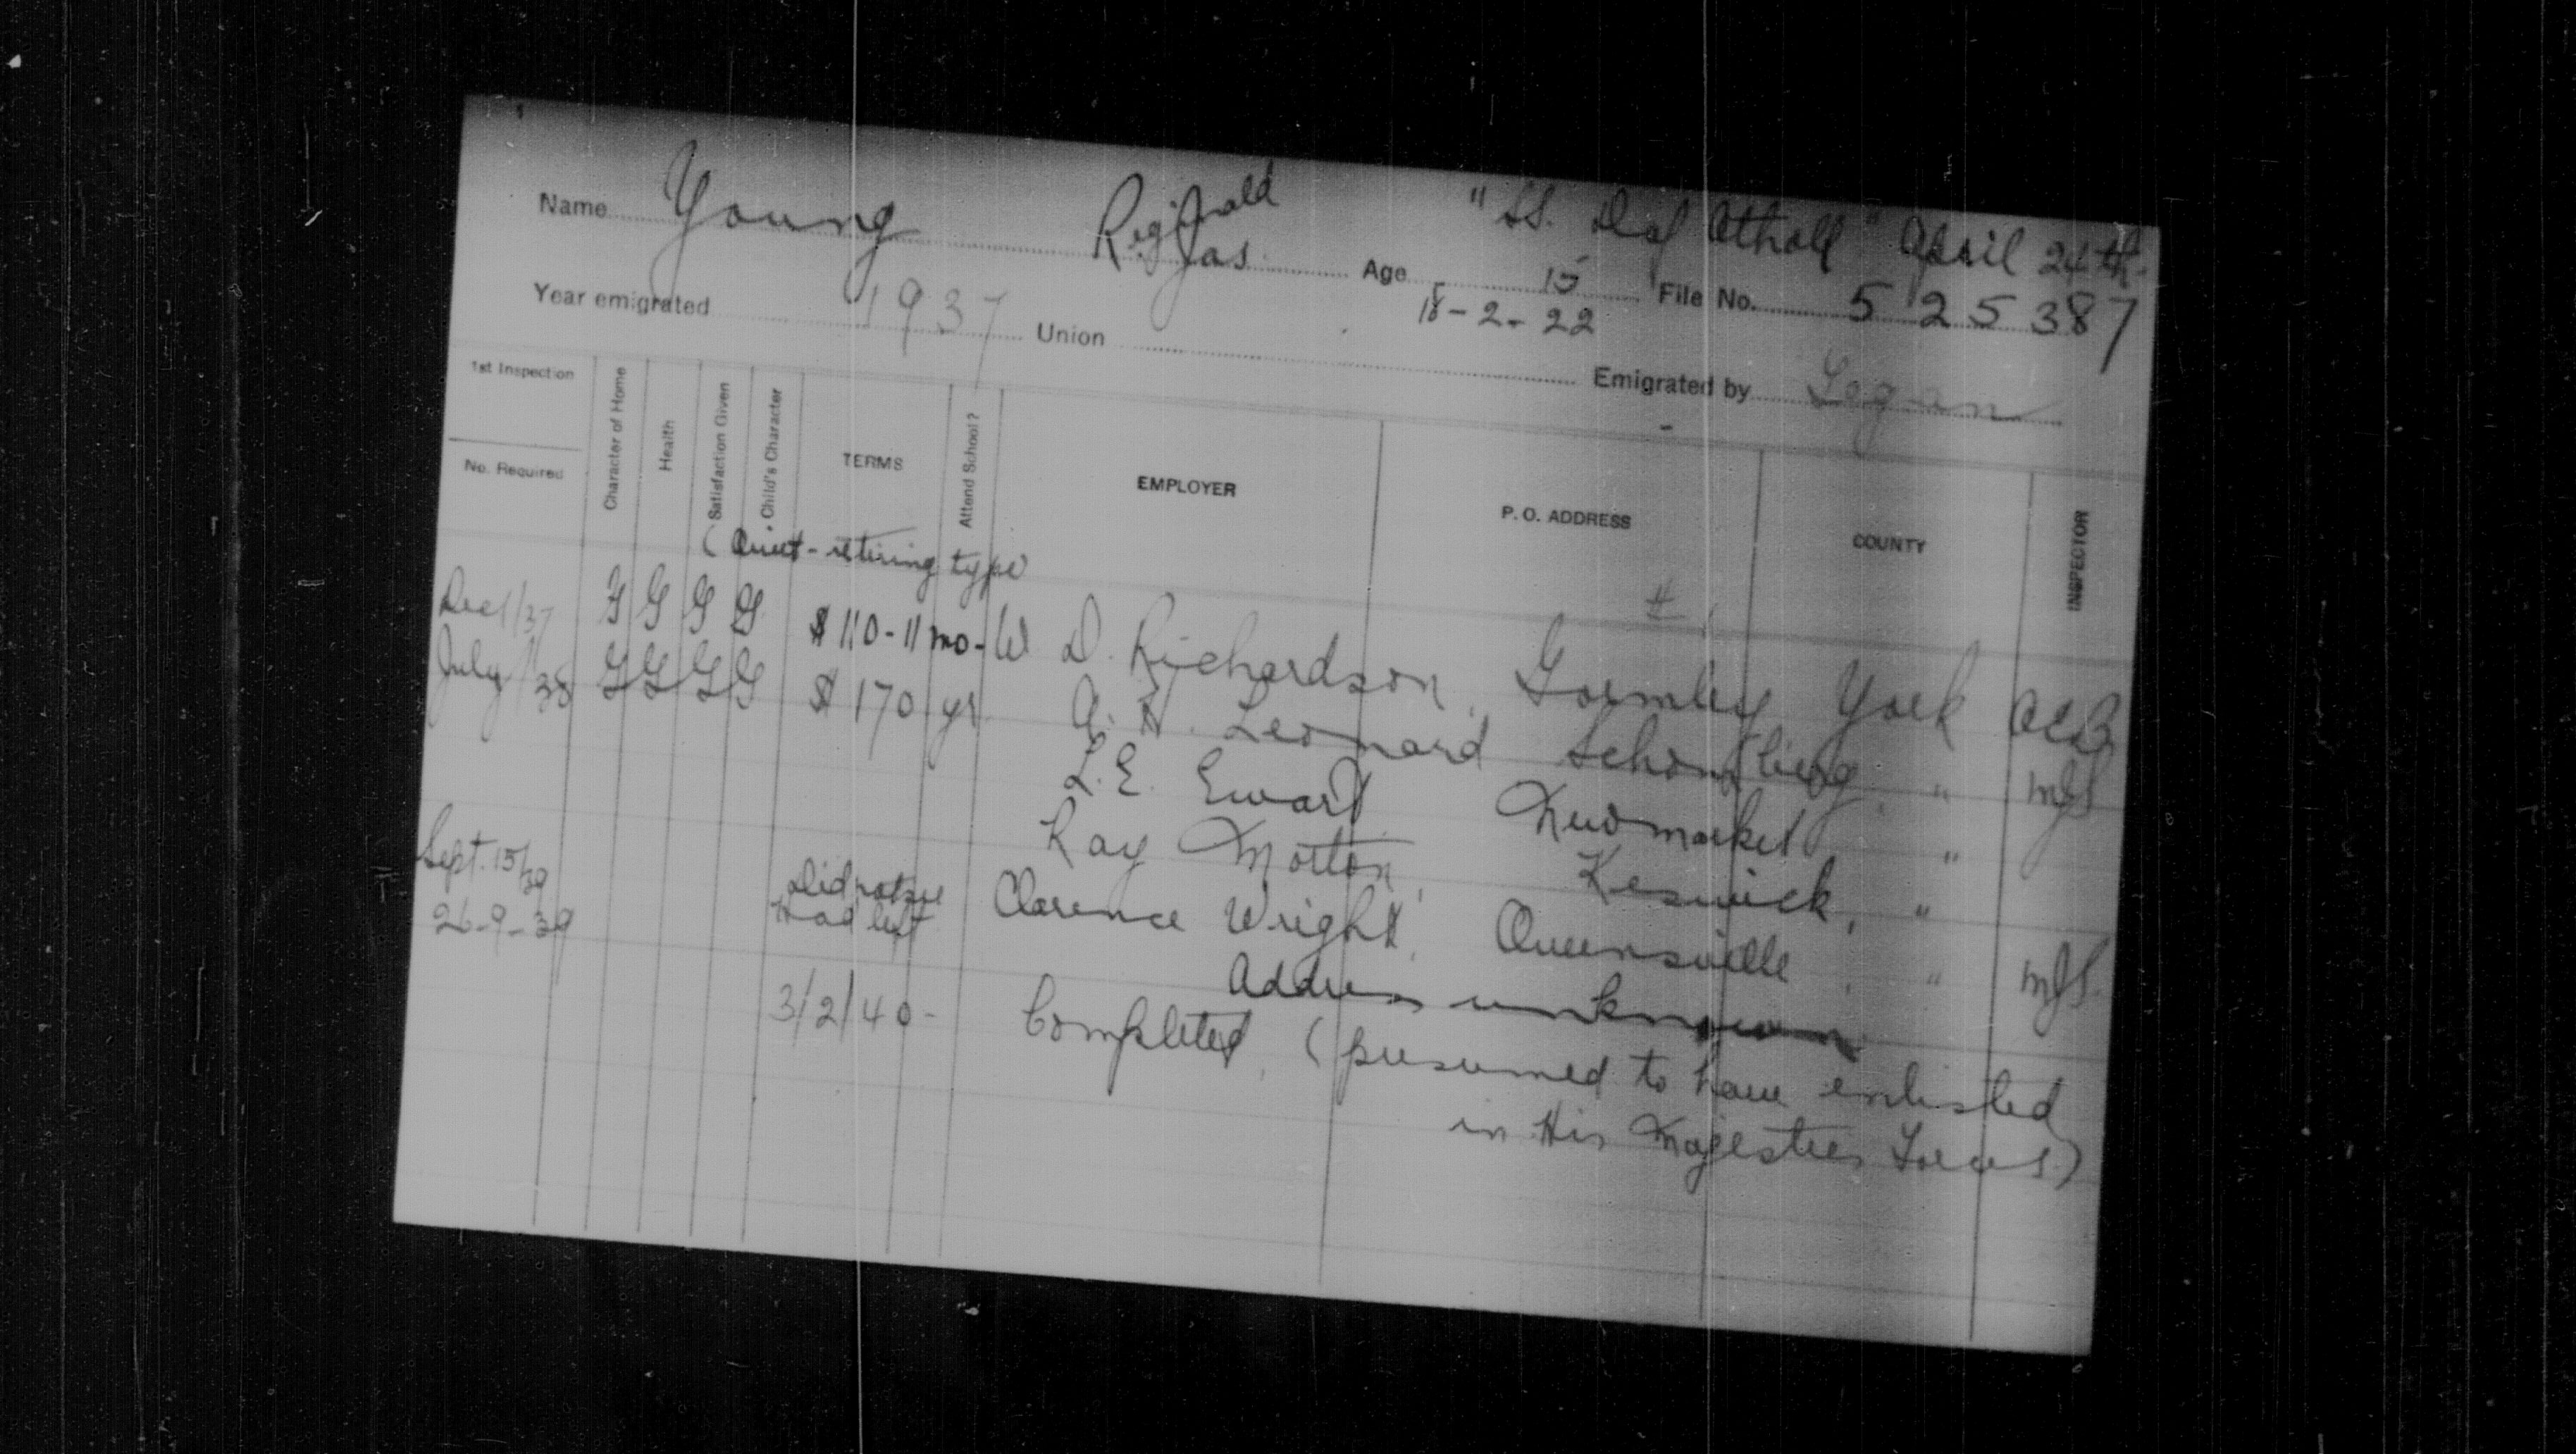 "SS. D of Atholl" April 24th.
Name Young Reginald Jas. Age 15 File No. 525387
18-2-22
Year emigrated 1937 Union Emigrated by Logan
1st Inspection
No. Required
Character of Home
Health
Satisfaction Given
Child's Character
TERMS
Attend School?
EMPLOYER
P. O. ADDRESS
COUNTY
INSPECTOR
(Quiet-retiring type
#
Dec 1/37 G G G G $110-11 mo- W D. Richardson, Gormley York
July /38 G G G G $170 yr A. H. Leonard Schomberg, " MJS
L. E. Ewart Newmarket, "
Ray Morton, Keswick, "
Sept. 15/39 Did not see Had left Clarence Wright, Queensville, " MJS.
26-9-39 Address unknown
3/2/40- Completed, (presumed to have enlisted
in His Majesties Forces)